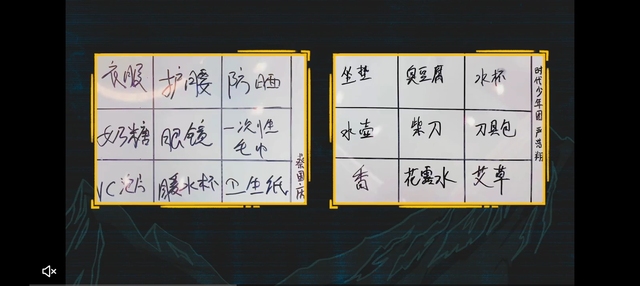 衣服 护腰 防晒
奶糖 眼镜 一次性毛巾
VC泡片 暖水杯 卫生纸
桑国庆
坐垫 臭豆腐 水杯
水壶 柴刀 刀具包
香 花露水 艾草
时代少年团 严浩翔